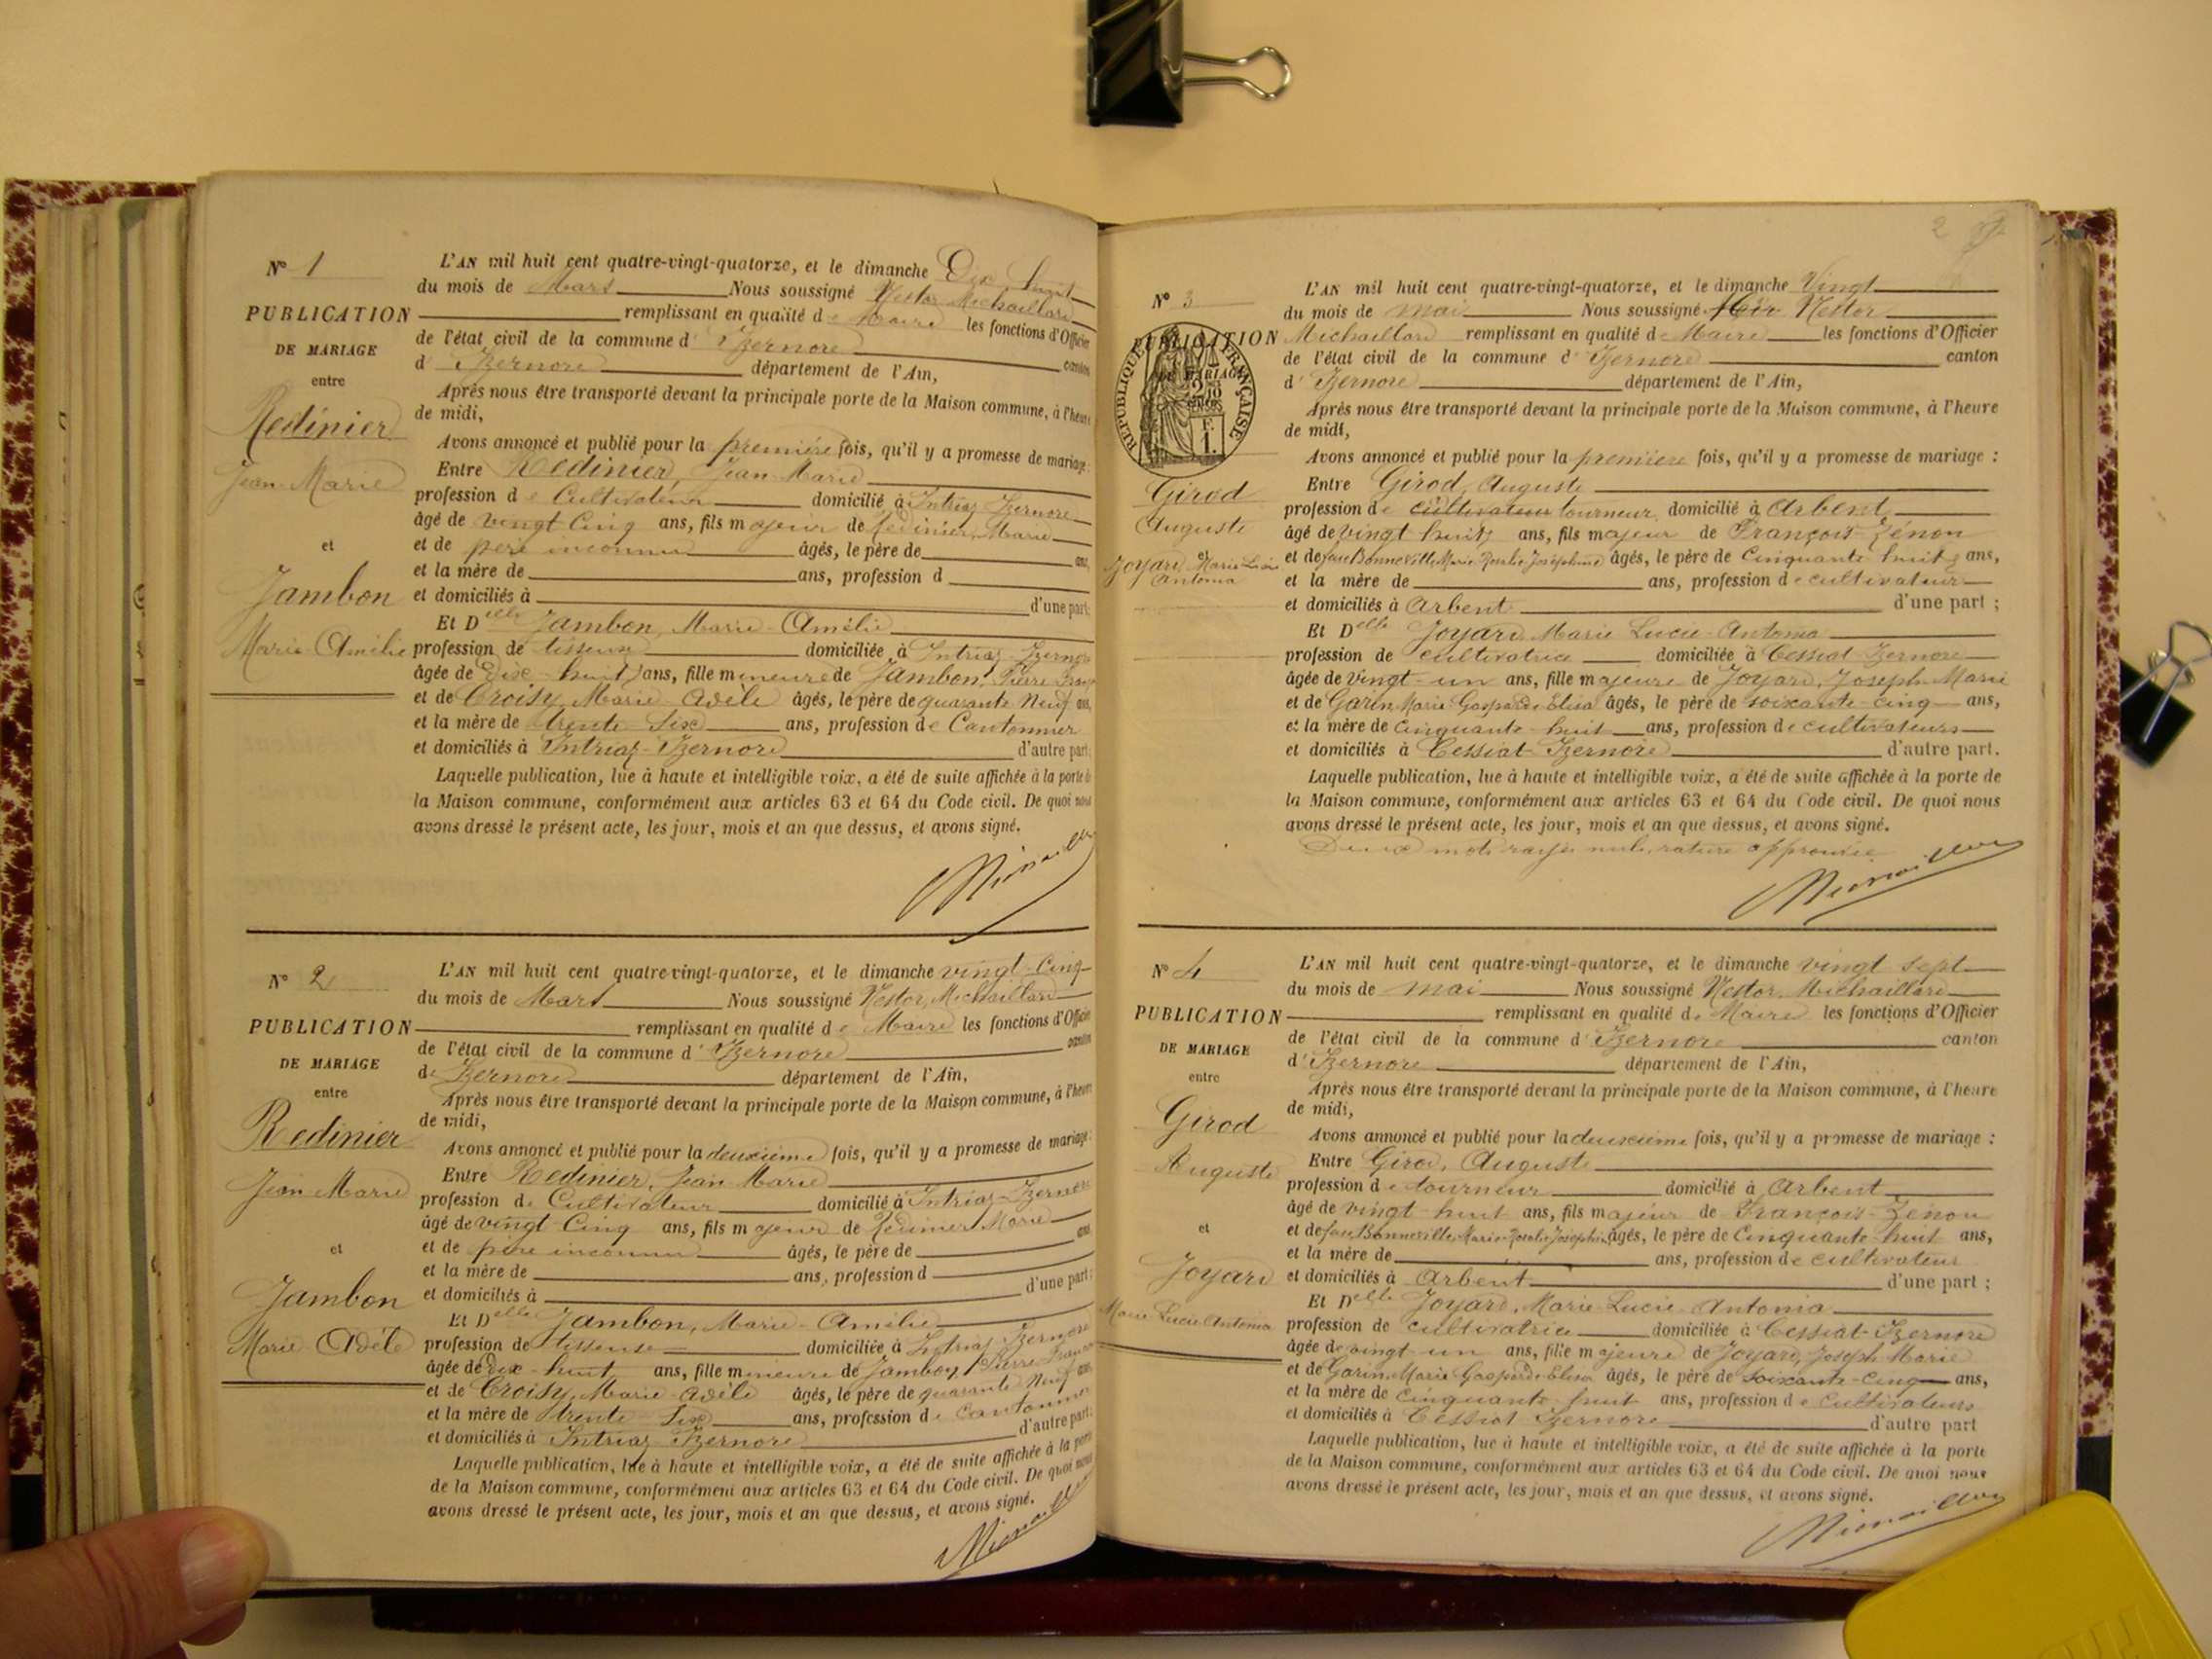 N° 1
PUBLICATION
DE MARIAGE
entre
Redinier
Jean-Marie
et
Jambon
Marie-Amélie
L'AN mil huit cent quatre-vingt-quatorze, et le dimanche Dix huit
du mois de Mars Nous soussigné Nestor Michaillard
remplissant en qualité de Maire les fonctions d'Officier
de l'état civil de la commune d'Izernore canton
d'Izernore département de l'Ain,
Après nous être transporté devant la principale porte de la Maison commune, à l'heure
de midi,
Avons annoncé et publié pour la première fois, qu'il y a promesse de mariage:
Entre Redinier, Jean-Marie
profession de Cultivateur domicilié à Intriaz Izernore
âgé de vingt Cinq ans, fils majeur de Redinier, Marie
et de père inconnu âgés, le père de ans,
et la mère de ans, profession d
et domiciliés à d'une part;
Et Delle Jambon, Marie-Amélie
profession de tisseuse domiciliée à Intriaz Izernore
âgée de Dix-huit ans, fille mineure de Jambon, Pierre Franç
et de Croisy, Marie-Adèle âgés, le père de quarante Neuf ans,
et la mère de trente-Six ans, profession de Cantonnier
et domiciliés à Intriaz-Izernore d'autre part.
Laquelle publication, lue à haute et intelligible voix, a été de suite affichée à la porte de
la Maison commune, conformément aux articles 63 et 64 du Code civil. De quoi nous
avons dressé le présent acte, les jour, mois et an que dessus, et avons signé.
N° 2
PUBLICATION
DE MARIAGE
entre
Redinier
Jean-Marie
et
Jambon
Marie-Adèle
L'AN mil huit cent quatre-vingt-quatorze, et le dimanche vingt-Cinq
du mois de Mars Nous soussigné Nestor, Michaillard
remplissant en qualité de Maire les fonctions d'Officier
de l'état civil de la commune d'Izernore canton
de Izernore département de l'Ain,
Après nous être transporté devant la principale porte de la Maison commune, à l'heure
de midi,
Avons annoncé et publié pour la deuxième fois, qu'il y a promesse de mariage:
Entre Redinier, Jean-Marie
profession de Cultivateur domicilié à Intriaz-Izernore
âgé de vingt-Cinq ans, fils majeur de Redinier Marie
et de père inconnu âgés, le père de ans
et la mère de ans, profession d
et domiciliés à d'une part;
Et Delle Jambon, Marie-Amélie
profession de tisseuse domiciliée à Intriaz Izernore
âgée de Dix-huit ans, fille mineure de Jambon, Pierre Franç
et de Croisy, Marie-Adèle âgés, le père de quarante Neuf ans
et la mère de trente-Six ans, profession de Cantonnier
et domiciliés à Intriaz Izernore d'autre part.
Laquelle publication, lue à haute et intelligible voix, a été de suite affichée à la porte
de la Maison commune, conformément aux articles 63 et 64 du Code civil. De quoi nous
avons dressé le présent acte, les jour, mois et an que dessus, et avons signé.
2
N° 3
PUBLICATION
DE MARIAGE
RÉPUBLIQUE FRANÇAISE
Girod
Auguste
et
Joyard Marie Lucie
Antonia
L'AN mil huit cent quatre-vingt-quatorze, et le dimanche Vingt
du mois de mai Nous soussigné Nestor
Michaillard remplissant en qualité de Maire les fonctions d'Officier
de l'état civil de la commune d'Izernore canton
d'Izernore département de l'Ain,
Après nous être transporté devant la principale porte de la Maison commune, à l'heure
de midi,
Avons annoncé et publié pour la première fois, qu'il y a promesse de mariage :
Entre Girod, Auguste
profession de cultivateur tourneur domicilié à Arbent
âgé de vingt huit ans, fils majeur de François-Zénon
et de feue Bonneville Marie Rosalie Joséphine âgés, le père de Cinquante huit ans,
et la mère de ans, profession de cultivateur
et domiciliés à Arbent d'une part ;
Et Delle Joyard, Marie Lucie-Antonia
profession de cultivatrice domiciliée à Cessiat-Izernore
âgée de vingt-un ans, fille majeure de Joyard, Joseph-Marie
et de Garin Marie Gasparde Elisa âgés, le père de soixante-cinq ans,
et la mère de Cinquante-huit ans, profession de cultivateurs
et domiciliés à Cessiat-Izernore d'autre part.
Laquelle publication, lue à haute et intelligible voix, a été de suite affichée à la porte de
la Maison commune, conformément aux articles 63 et 64 du Code civil. De quoi nous
avons dressé le présent acte, les jour, mois et an que dessus, et avons signé.
Deux mots rayés nuls, rature approuvée
N° 4
PUBLICATION
DE MARIAGE
entre
Girod
Auguste
et
Joyard
Marie Lucie Antonia
L'AN mil huit cent quatre-vingt-quatorze, et le dimanche vingt sept
du mois de mai Nous soussigné Nestor, Michaillard
remplissant en qualité de Maire les fonctions d'Officier
de l'état civil de la commune d'Izernore canton
d'Izernore département de l'Ain,
Après nous être transporté devant la principale porte de la Maison commune, à l'heure
de midi,
Avons annoncé et publié pour la deuxième fois, qu'il y a promesse de mariage :
Entre Girod, Auguste
profession de tourneur domicilié à Arbent
âgé de vingt-huit ans, fils majeur de François-Zénon
et de feue Bonneville, Marie-Rosalie Joséphine âgés, le père de Cinquante-huit ans,
et la mère de ans, profession de cultivateur
et domiciliés à Arbent d'une part ;
Et Delle Joyard, Marie-Lucie-Antonia
profession de cultivatrice domiciliée à Cessiat-Izernore
âgée de vingt-un ans, fille majeure de Joyard, Joseph Marie
et de Garin, Marie Gasparde Elisa âgés, le père de soixante-cinq ans,
et la mère de Cinquante-huit ans, profession de Cultivateurs
et domiciliés à Cessiat Izernore d'autre part
Laquelle publication, lue à haute et intelligible voix, a été de suite affichée à la porte
de la Maison commune, conformément aux articles 63 et 64 du Code civil. De quoi nous
avons dressé le présent acte, les jour, mois et an que dessus, et avons signé.